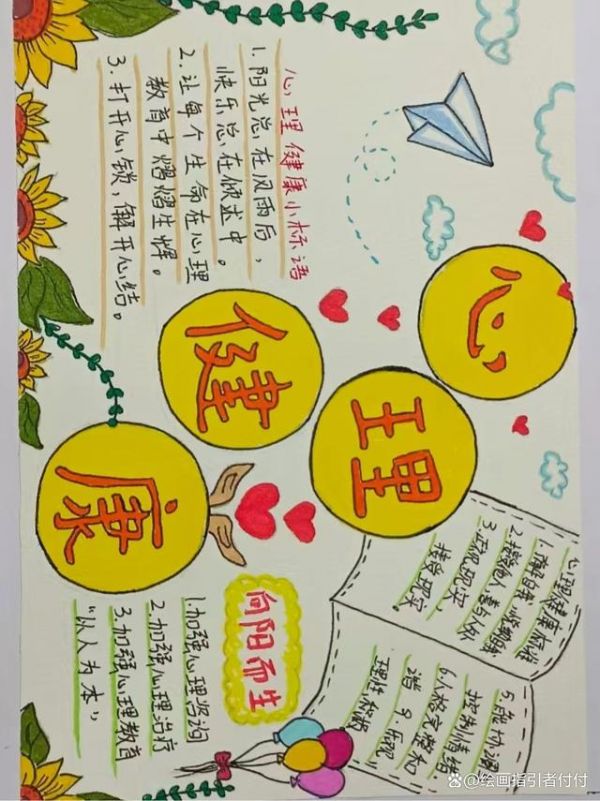 心理健康
心理健康小标语
1.阳光总在风雨后，
快乐总在倾述中。
2.让每个生命在心理
教育中熠熠生辉。
3.打开心锁，解开心结。
向阳而生
1.加强心理咨询
2.加强心理治疗
3.加强心理教育
“以人为本”
心理健康标准
1.了解自我
2.接纳他人 善与人处
3.正视现实，
接受现实。
控制情绪
6.人格完整和
绘画指引者付付